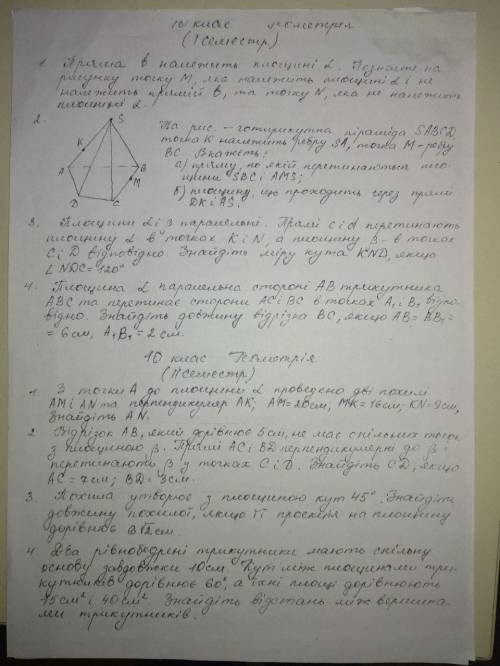 10 клас геометрия
(I семестр)
1. Пряма b належить площині α. Позначте на
рисунку точку M, яка належить площині α і не
належить прямій b, та точку N, яка не належить
площині α.
2.
S
K
A
B
M
D
C
На рис. – чотирикутна піраміда SABCD
точка K належить ребру SA, точка M - ребру
BC. Вкажіть:
а) пряму, по якій перетинаються пло-
щини SBC і AMS;
б) площину, що проходить через прямі
DK і AS.
3. Площини α і β паралельні. Прямі c і d перетинають
площину α в точках K і N, а площину β - в точках
C і D відповідно Знайдіть міру кута KND, якщо
∠NDC = 120°
4. Площина α паралельна стороні AB трикутника
ABC та перетинає сторони AC і BC в точках A₁ і B₁ відпо-
відно. Знайдіть довжину відрізка BC, якщо AB = BB₁ =
= 6 см, A₁B₁ = 2 см.
10 клас Геометрія
(II семестр)
1. З точки A до площини α проведено дві похилі
AM і AN та перпендикуляр AK; AM = 20см, MK = 16см; KN = 9см,
Знайдіть AN.
2. Відрізок AB, який дорівнює 5см, не має спільних точок
з площиною β. Прямі AC і BD перпендикулярні до β і
перетинають β у точках C і D. Знайдіть CD, якщо
AC = 7см; BD = 3см.
3. Похила утворює з площиною кут 45°. Знайдіть
довжину похилої, якщо її проєкція на площину
дорівнює √2см.
4. Два рівнобедрені трикутники мають спільну
основу завдовжки 10см Кут між площинами три-
кутників дорівнює 60°, а їхні площі дорівнюють
15см² і 40см² Знайдіть відстань між вершина-
ми трикутників.